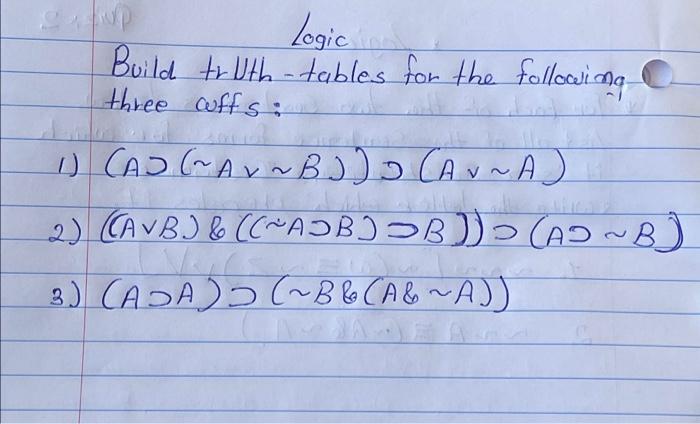 Logic
Build trUth-tables for the following
three wffs:
1) (A⊃(~A∨~B))⊃(A∨~A)
2) ((A∨B)&((~A⊃B)⊃B))⊃(A⊃~B)
3) (A⊃A)⊃(~B&(A&~A))